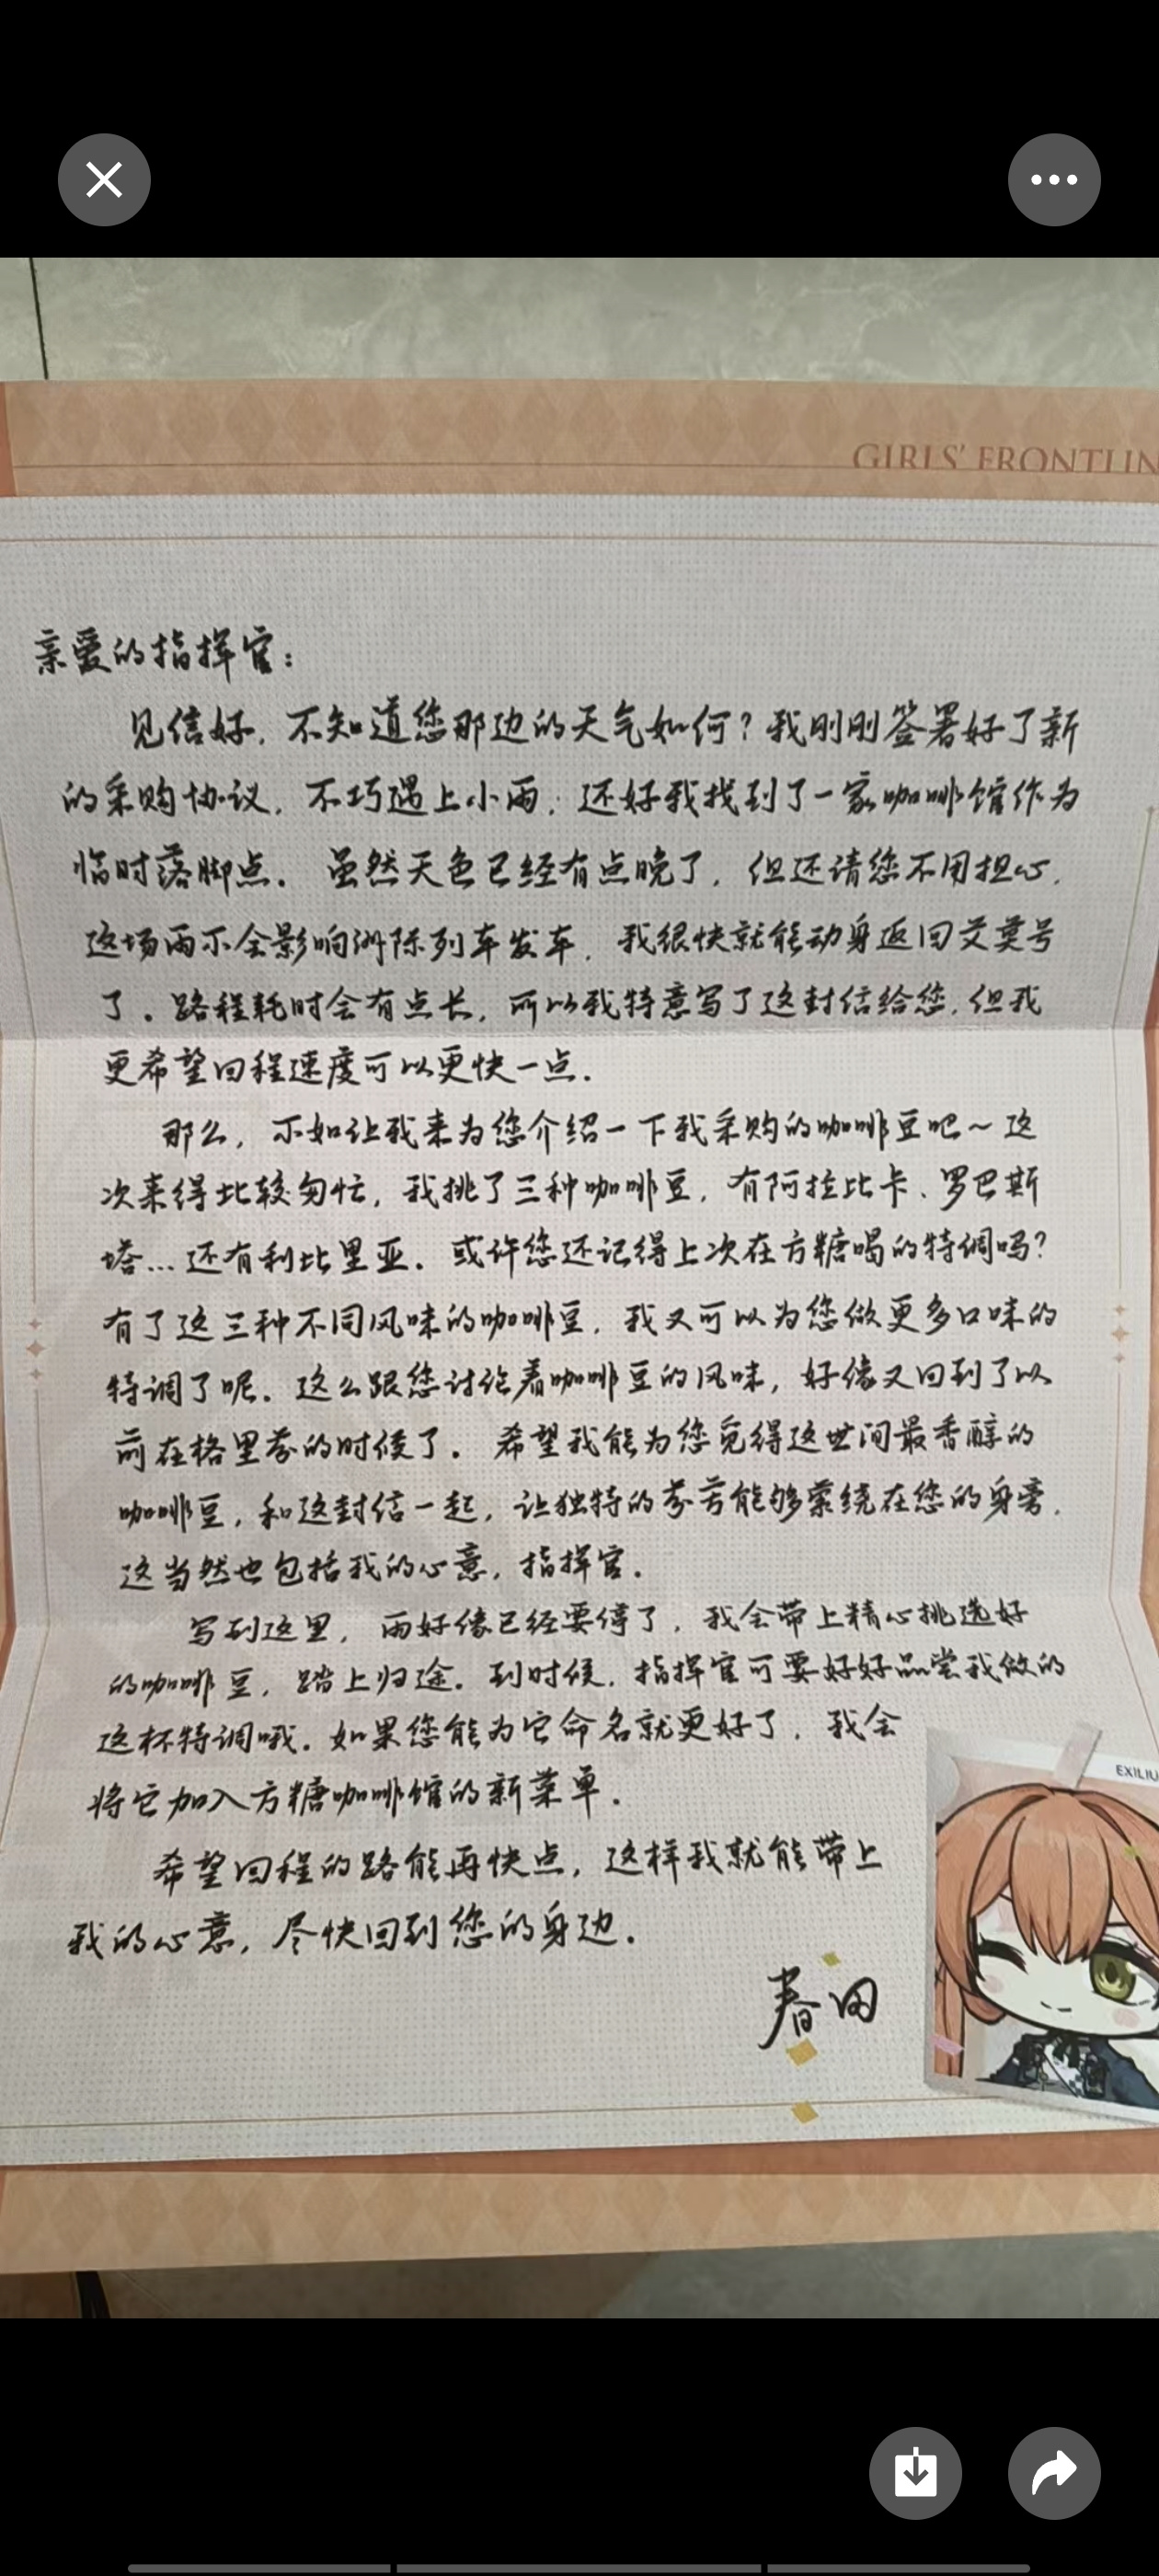 GIRLS' FRONTLIN
亲爱的指挥官：
见信好，不知道您那边的天气如何？我刚刚签署好了新
的采购协议，不巧遇上小雨，还好我找到了一家咖啡馆作为
临时落脚点。虽然天色已经有点晚了，但还请您不用担心，
这场雨不会影响洲际列车发车，我很快就能动身返回艾莫号
了。路程耗时会有点长，所以我特意写了这封信给您，但我
更希望回程速度可以更快一点。
那么，不如让我来为您介绍一下我采购的咖啡豆吧～这
次来得比较匆忙，我挑了三种咖啡豆，有阿拉比卡、罗巴斯
塔…还有利比里亚。或许您还记得上次在方糖喝的特调吗？
有了这三种不同风味的咖啡豆，我又可以为您做更多口味的
特调了呢。这么跟您讨论着咖啡豆的风味，好像又回到了以
前在格里芬的时候了。希望我能为您觅得这世间最香醇的
咖啡豆，和这封信一起，让独特的芬芳能够萦绕在您的身旁，
这当然也包括我的心意，指挥官。
写到这里，雨好像已经要停了，我会带上精心挑选好
的咖啡豆，踏上归途。到时候，指挥官可要好好品尝我做的
这杯特调哦。如果您能为它命名就更好了，我会
将它加入方糖咖啡馆的新菜单。
EXILIU
希望回程的路能再快点，这样我就能带上
我的心意，尽快回到您的身边。
春田